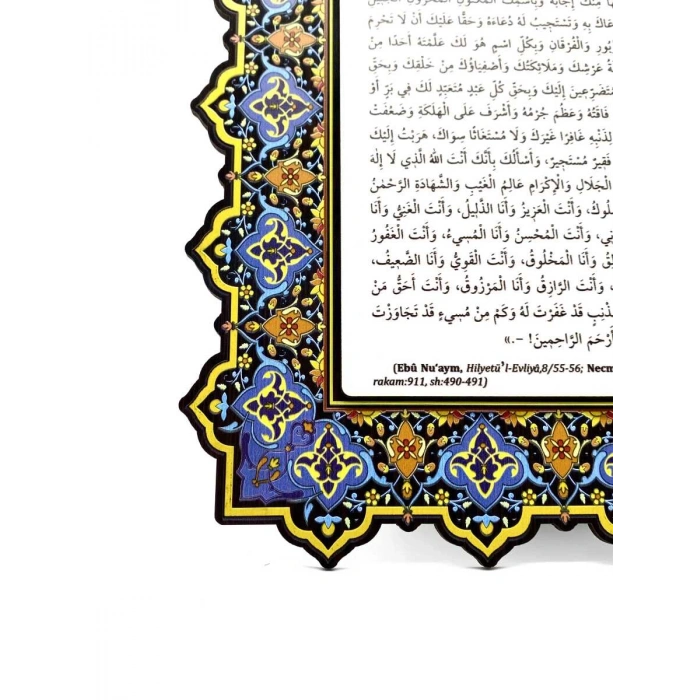 عَاكَ بِهِ وَتَسْتَجِيبُ لَهُ دُعَاءَهُ وَحَقًّا عَلَيْكَ أَنْ لَا تَحْرِمَ
بُورِ وَالْفُرْقَانِ وَبِكُلِّ اسْمٍ هُوَ لَكَ عَلَّمْتَهُ أَحَدًا مِنْ
ةُ عَرْشِكَ وَمَلَائِكَتُكَ وَأَصْفِيَاؤُكَ مِنْ خَلْقِكَ وَبِحَقِّ
مُتَضَرِّعِينَ إِلَيْكَ وَبِحَقِّ كُلِّ عَبْدٍ مُتَعَبِّدٍ لَكَ فِي بَرٍّ أَوْ
فَاقَتُهُ وَعَظُمَ جُرْمُهُ وَأَشْرَفَ عَلَى الْهَلَكَةِ وَضَعُفَتْ
لِذَنْبِهِ غَافِرًا غَيْرَكَ وَلَا مُسْتَغَاثًا سِوَاكَ، هَرَبْتُ إِلَيْكَ
فَقِيرٌ مُسْتَجِيرٌ، وَأَسْأَلُكَ بِأَنَّكَ أَنْتَ اللَّهُ الَّذِي لَا إِلَهَ
الْجَلَالِ وَالْإِكْرَامِ عَالِمُ الْغَيْبِ وَالشَّهَادَةِ الرَّحْمٰنُ
لُوكُ، وَأَنْتَ الْعَزِيزُ وَأَنَا الذَّلِيلُ، وَأَنْتَ الْغَنِيُّ وَأَنَا
وَأَنْتَ الْمُحْسِنُ وَأَنَا الْمُسِيءُ، وَأَنْتَ الْغَفُورُ
قُ وَأَنَا الْمَخْلُوقُ، وَأَنْتَ الْقَوِيُّ وَأَنَا الضَّعِيفُ،
، وَأَنْتَ الرَّازِقُ وَأَنَا الْمَرْزُوقُ، وَأَنْتَ أَحَقُّ مَنْ
ذْنِبٍ قَدْ غَفَرْتَ لَهُ وَكَمْ مِنْ مُسِيءٍ قَدْ تَجَاوَزْتَ
أَرْحَمَ الرَّاحِمِينَ! –.»
(Ebû Nu'aym, Hilyetü'l-Evliyâ,8/55-56; Necm
rakam:911, sh:490-491)